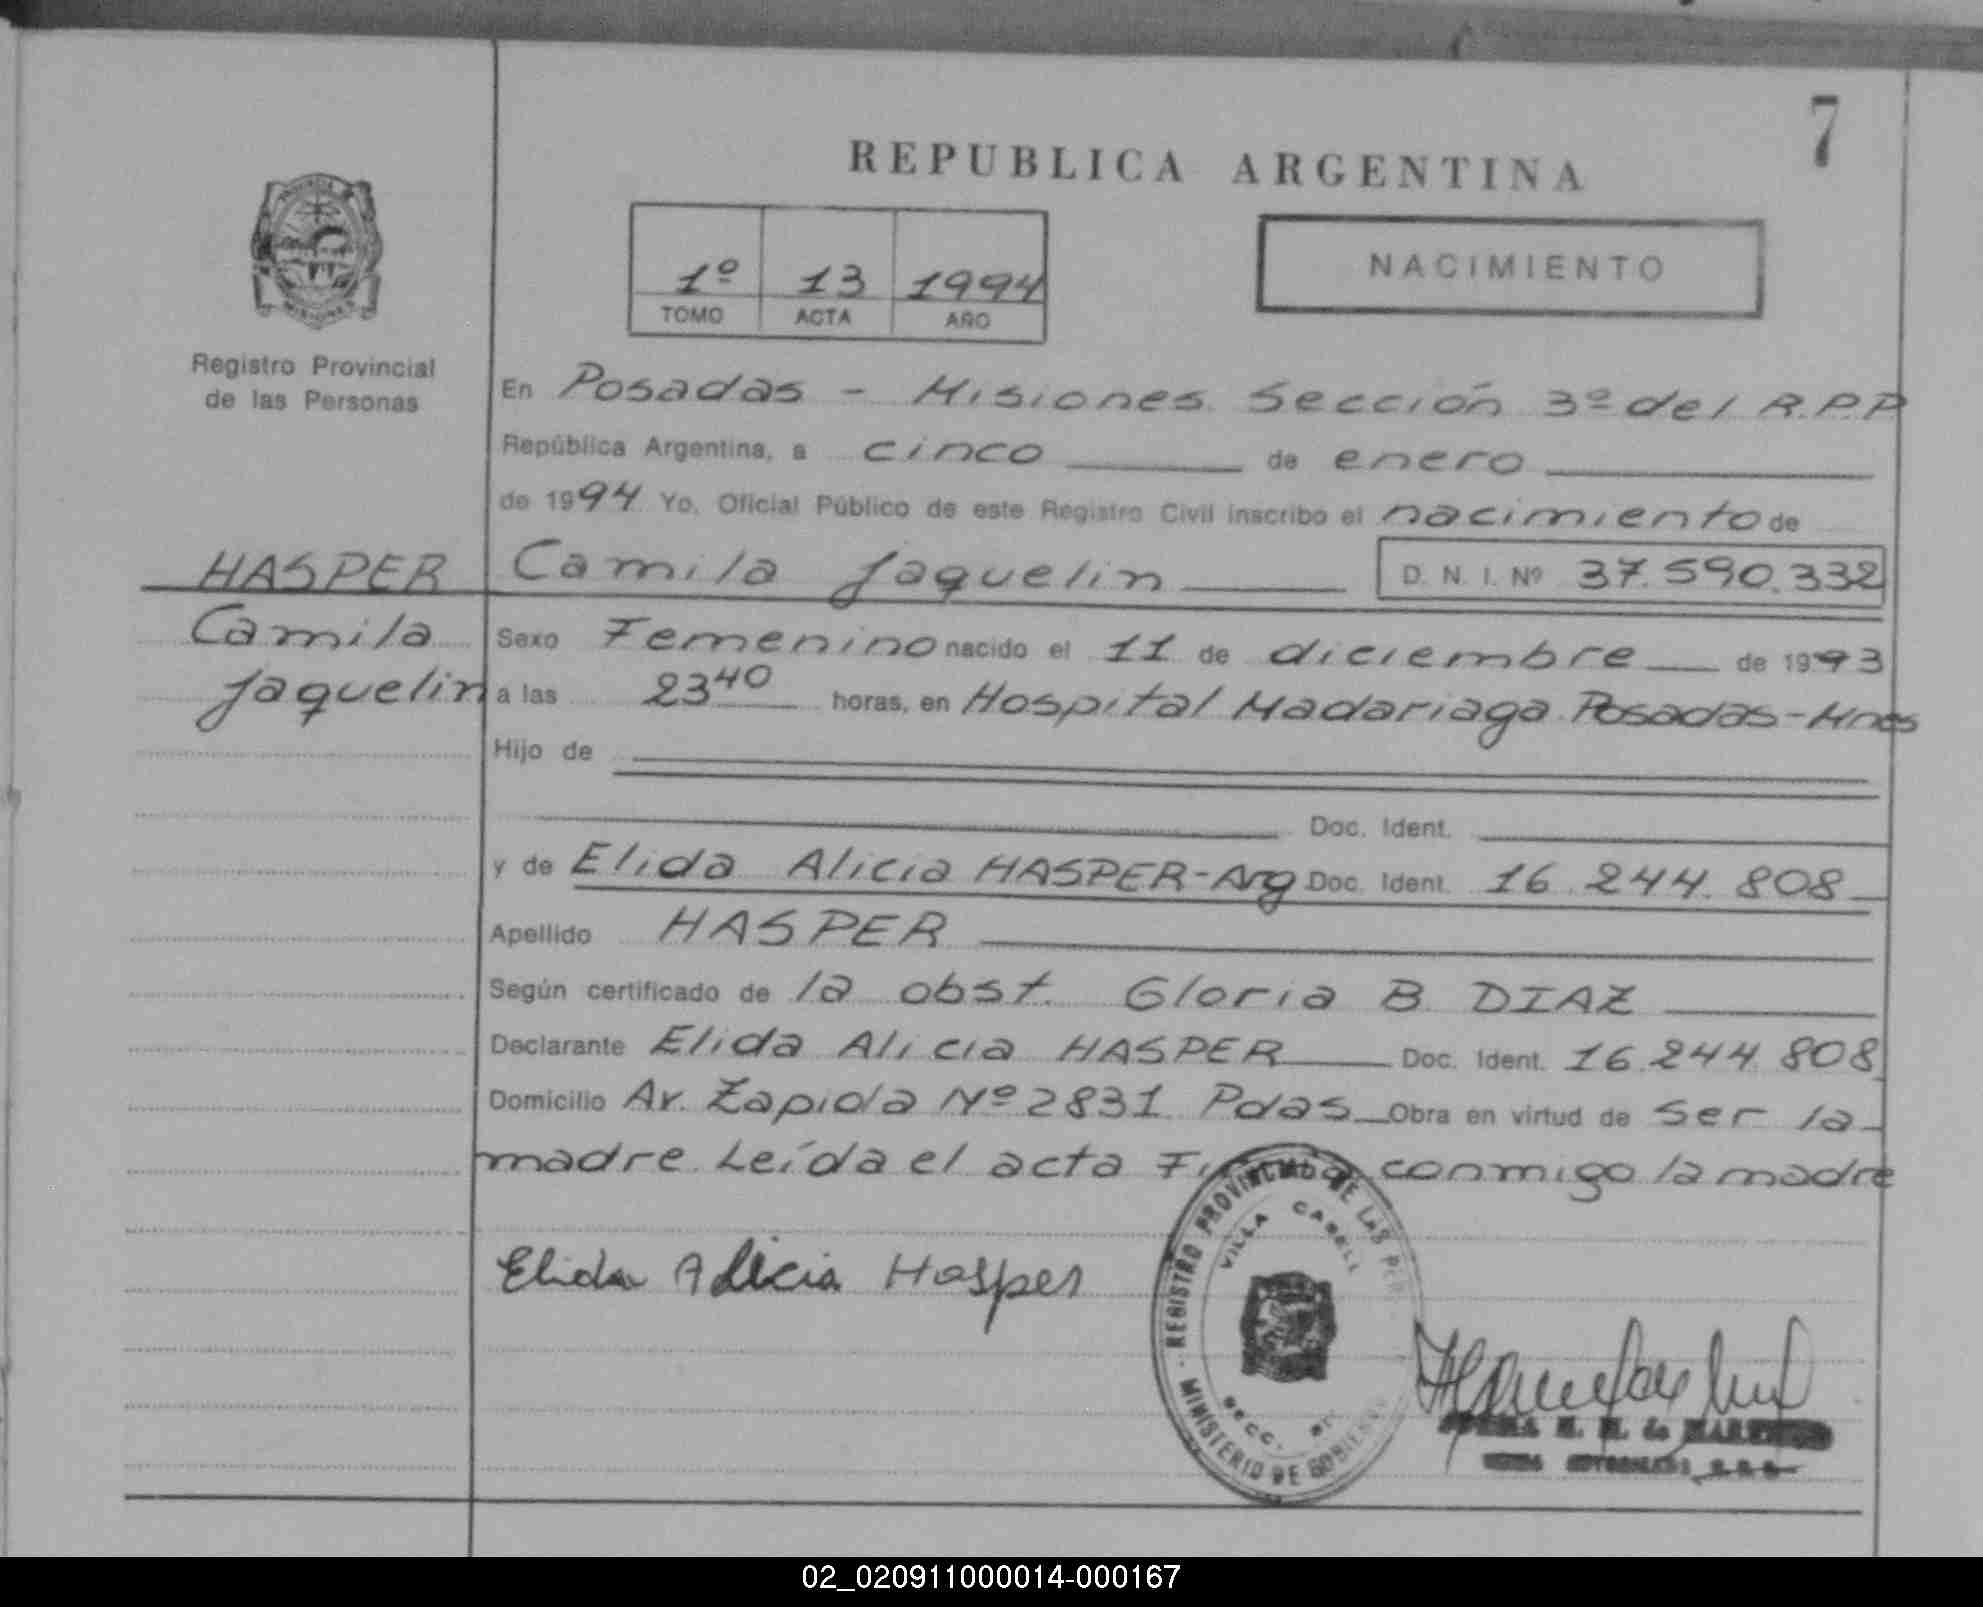 7
REPUBLICA ARGENTINA
1º 13 1994
TOMO ACTA AÑO
NACIMIENTO
Registro Provincial
de las Personas
En Posadas - Misiones Sección 3º del R.P.P
República Argentina, a cinco de enero
de 1994 Yo, Oficial Público de este Registro Civil inscribo el nacimiento de
HASPER
Camila
Jaquelin
Camila Jaquelin D. N. I. Nº 37.590.332
Sexo Femenino nacido el 11 de diciembre de 1993
a las 23 40 horas, en Hospital Madariaga Posadas-Mnes
Hijo de
Doc. Ident.
y de Elida Alicia HASPER-Arg Doc. Ident. 16.244.808
Apellido HASPER
Según certificado de la obst. Gloria B. DIAZ
Declarante Elida Alicia HASPER Doc. Ident. 16.244.808
Domicilio Av. Zapiola Nº 2831 Pdas Obra en virtud de ser la
madre. Leída el acta conmigo la madre
Elida Alicia Hasper
REGISTRO PROVINCIAL DE LAS
VILLA CABELL
SECC.
MINISTERIO DE GOBIERNO
02_020911000014-000167